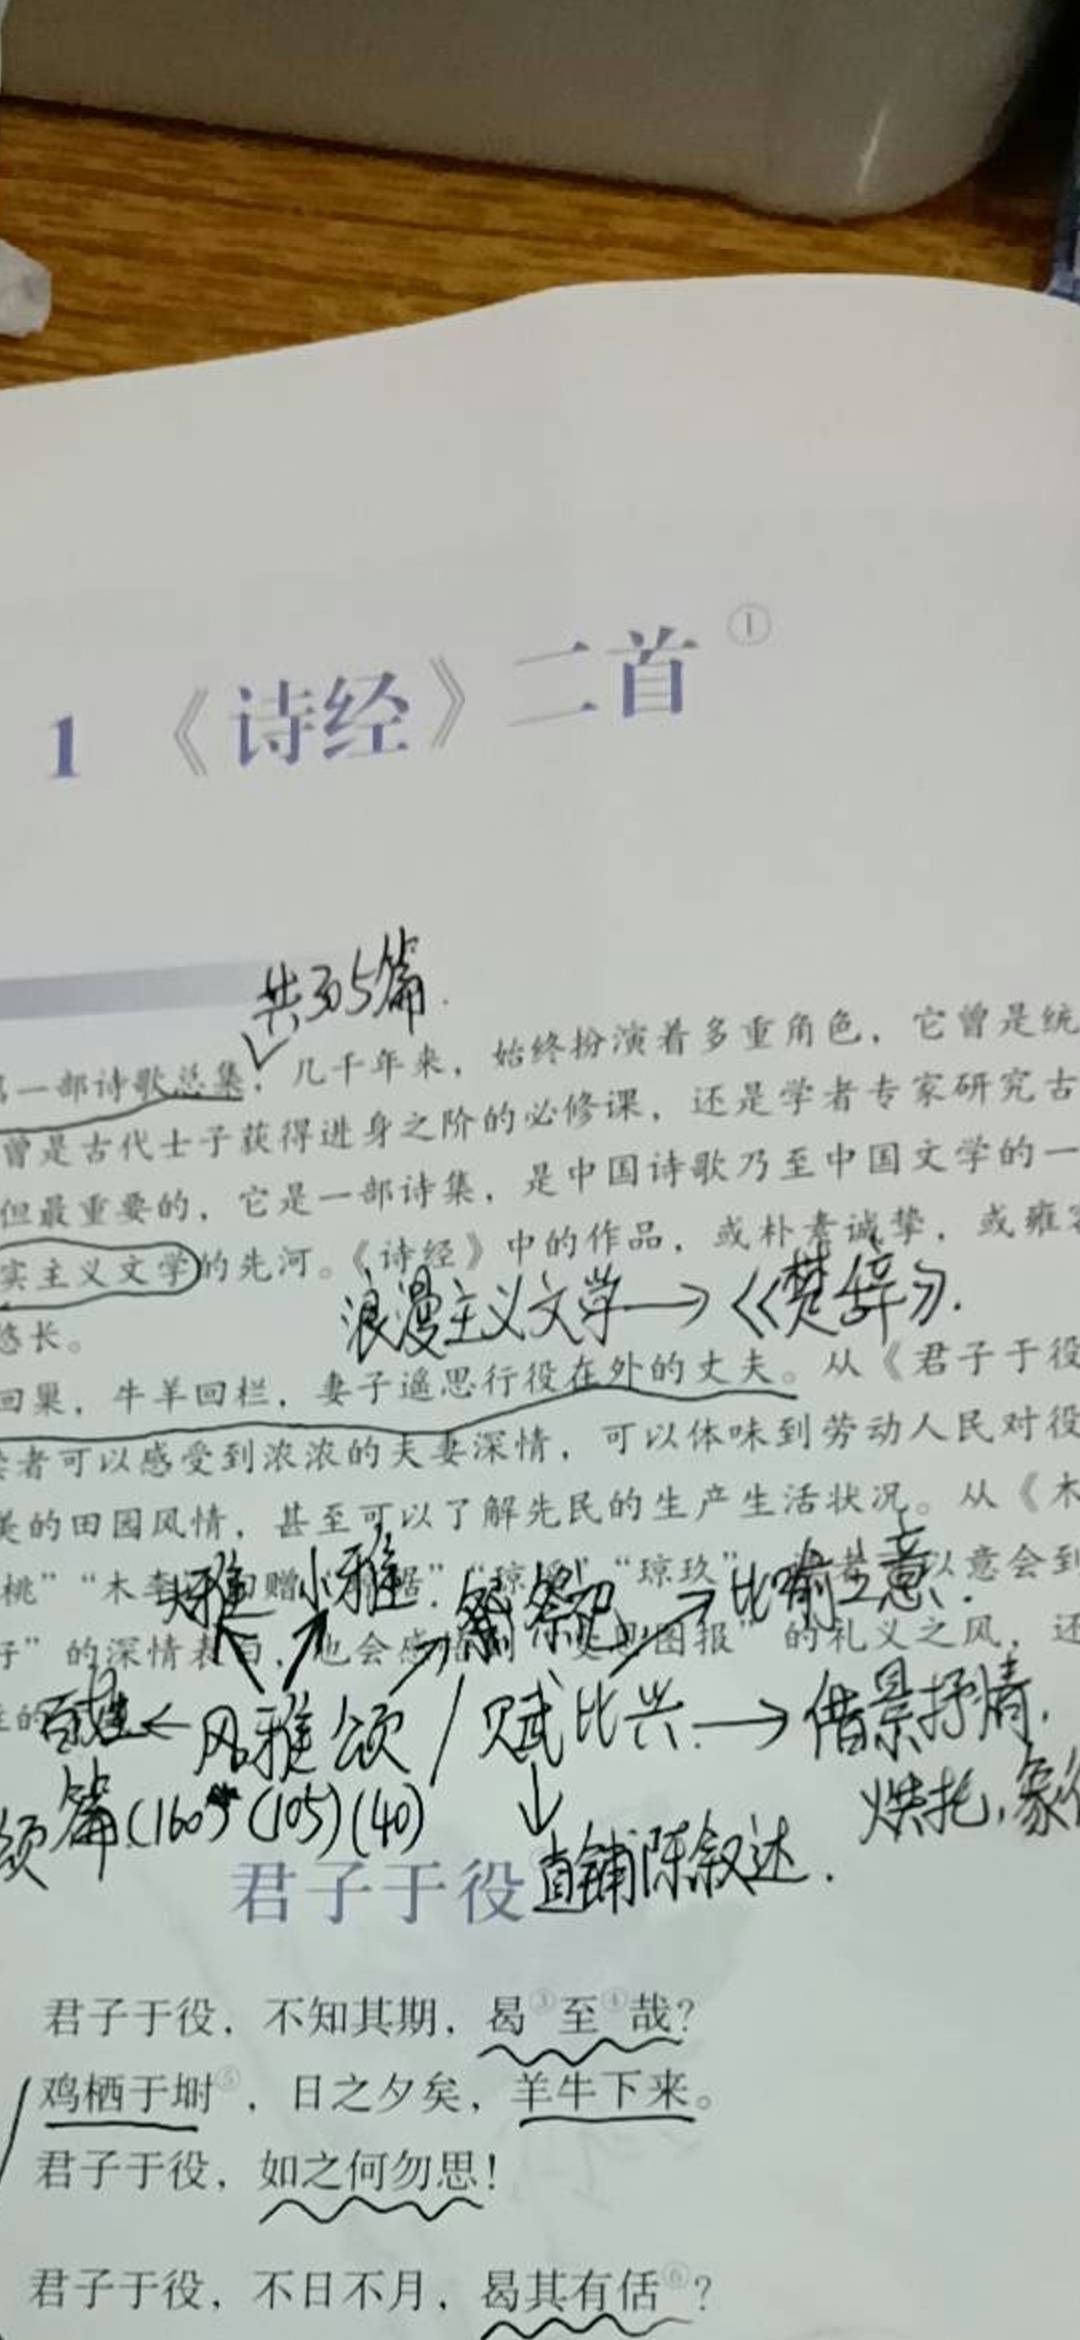 1 《诗经》二首①
共305篇.
一部诗歌总集，几千年来，始终扮演着多重角色，它曾是统
曾是古代士子获得进身之阶的必修课，还是学者专家研究古
但最重要的，它是一部诗集，是中国诗歌乃至中国文学的一
实主义文学的先河。《诗经》中的作品，或朴素诚挚，或雍
浪漫主义文学→《楚辞》.
悠长。
回巢，牛羊回栏，妻子遥思行役在外的丈夫。从《君子于役
者可以感受到浓浓的夫妻深情，可以体味到劳动人民对役
美的田园风情，甚至可以了解先民的生产生活状况。从《木
桃”“木李” 回赠 “琼玖” 以意会到
大雅 小雅 祭祀 比喻之意.
好”的深情表白，也会感 图报”的礼义之风，还
百姓←风雅颂/赋比兴→借景抒情,
烘托,象
颂篇(160)(105)(40)
直铺陈叙达.
君子于役
君子于役，不知其期，曷③至④哉？
鸡栖于埘⑤，日之夕矣，羊牛下来。
君子于役，如之何勿思！
君子于役，不日不月，曷其有佸⑥？